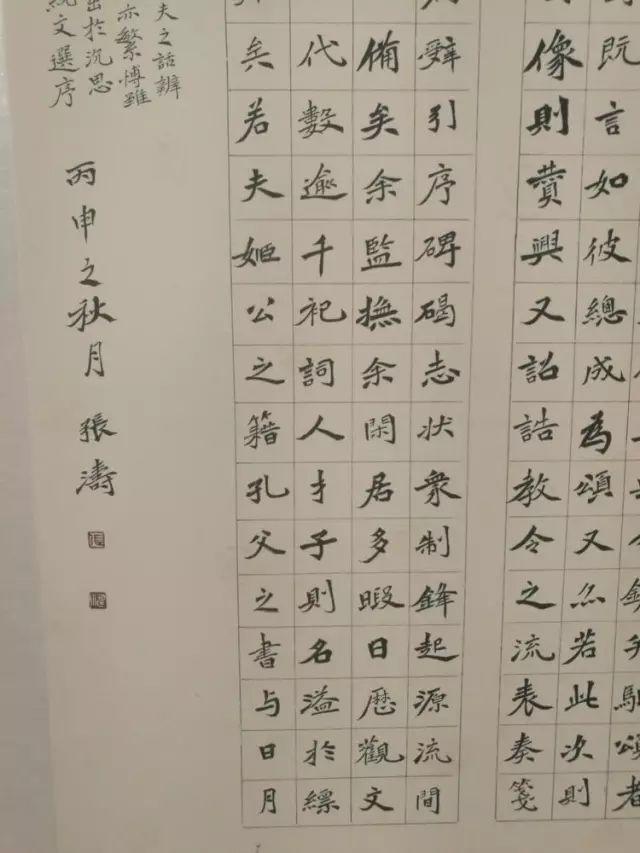 既言如彼總成為頌又亦若此次則
像則贊興又詔誥教令之流表奏箋
辭引序碑碣志状衆制鋒起源流間
備矣余監撫余閑居多暇日歷觀文
代數逾千祀詞人才子則名溢於縹
矣若夫姬公之籍孔父之書与日月
夫之話辨
亦繁博雖
出於沉思
文選序
丙申之秋月 張濤